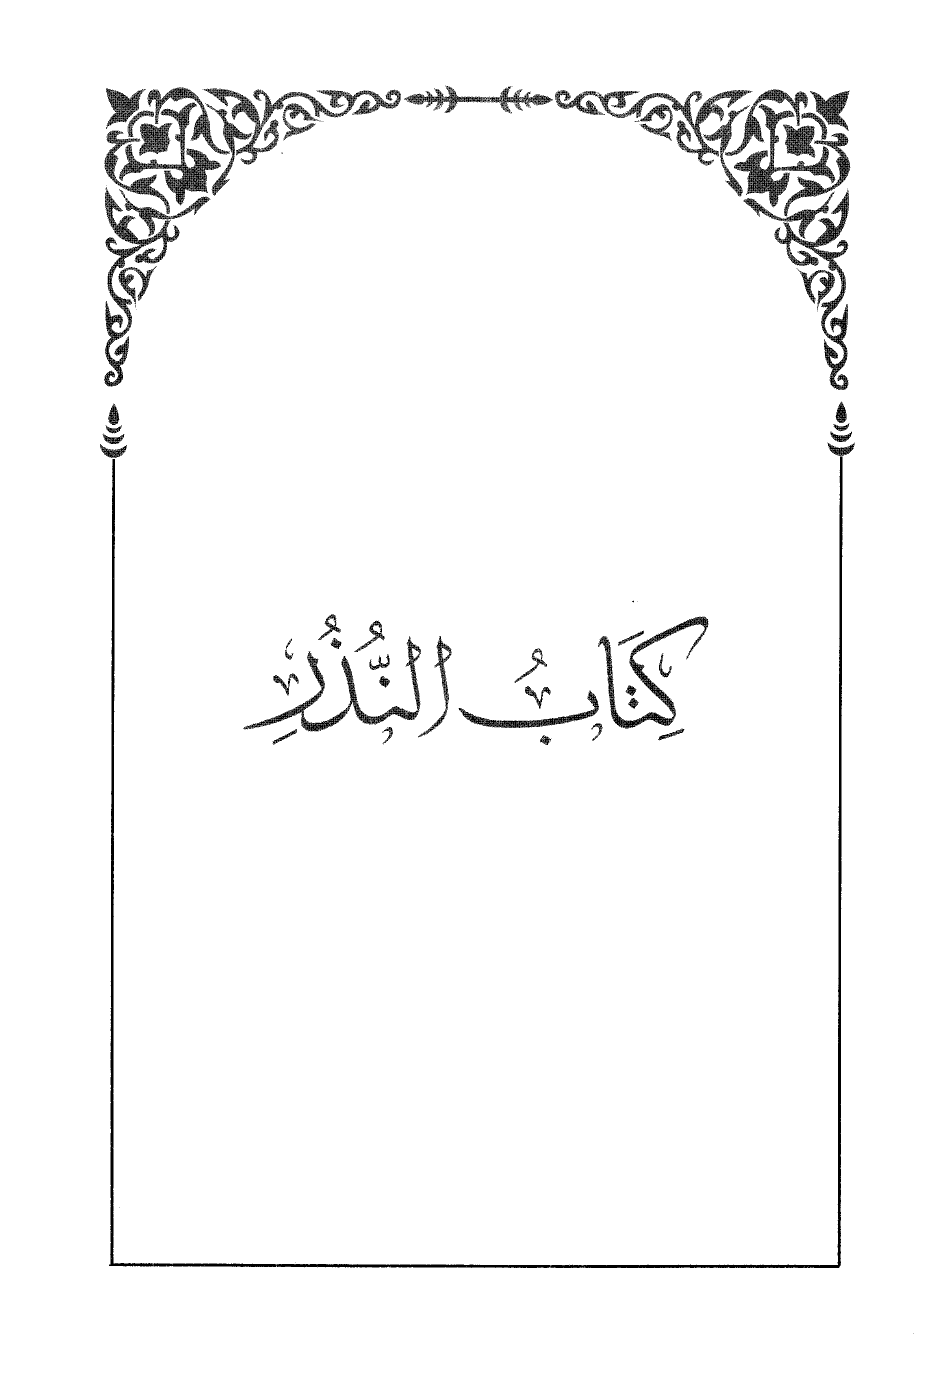 كِتَابُ النُّذُرِ